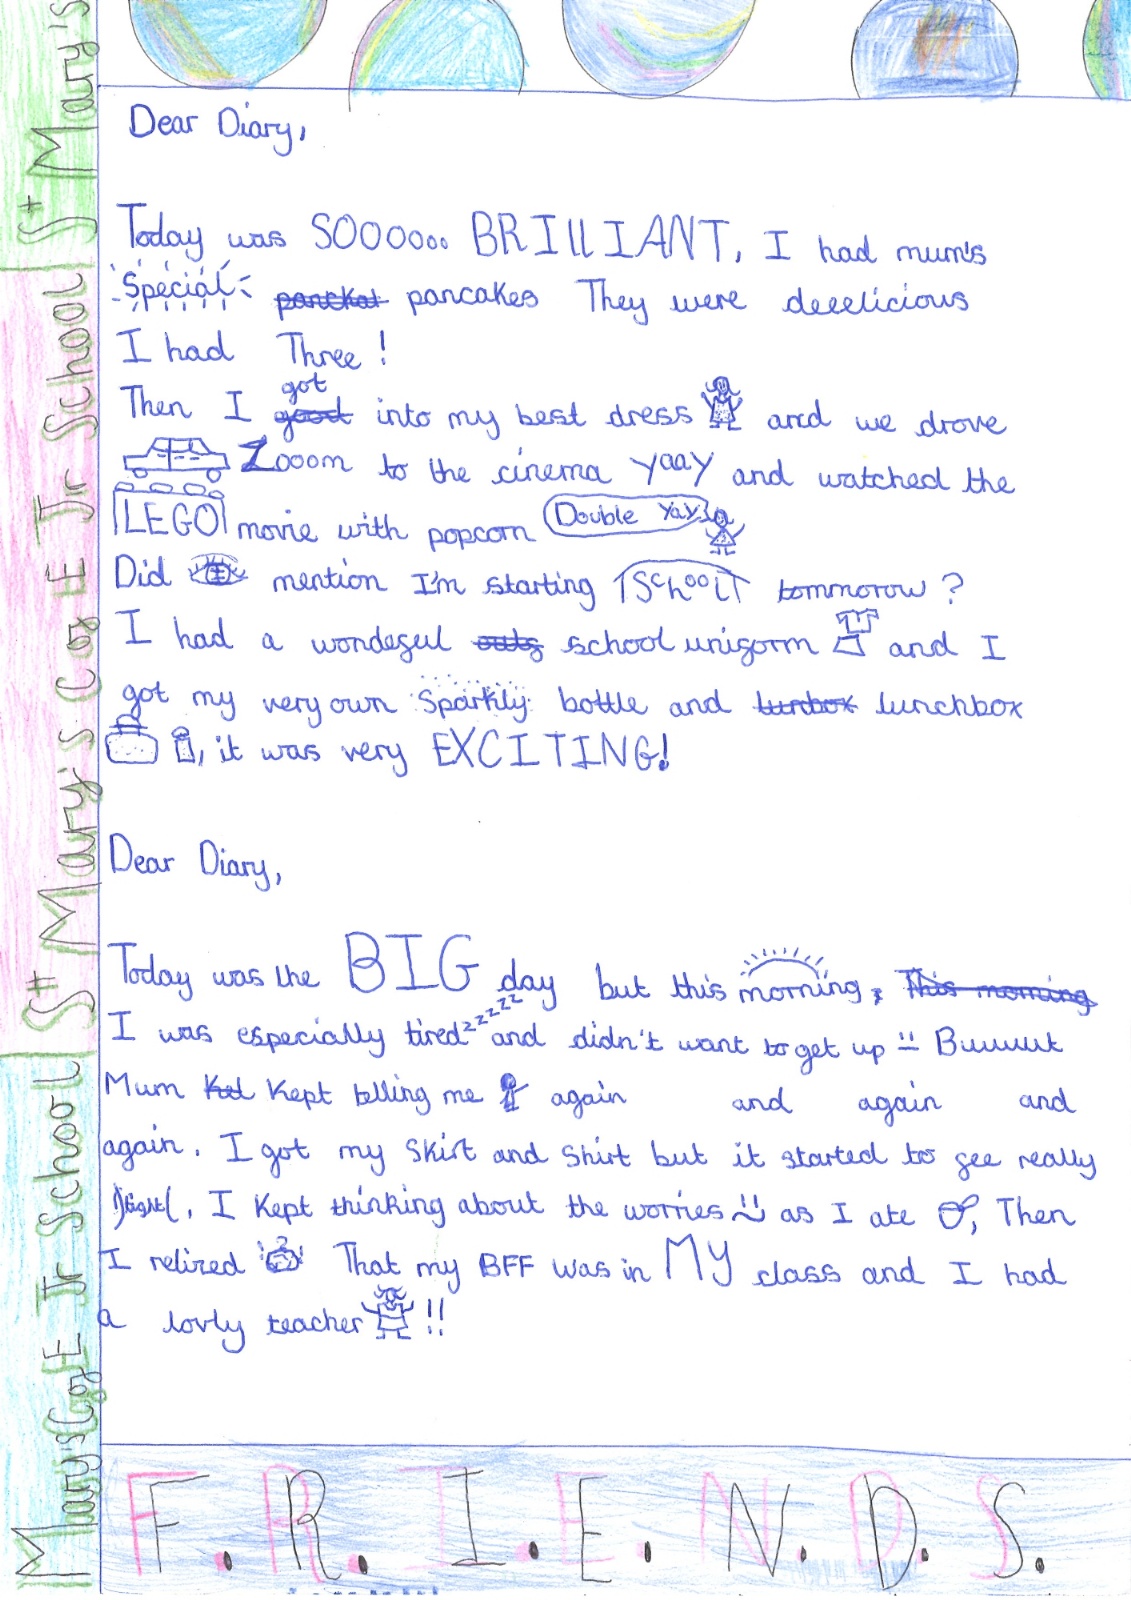 Dear Diary,
Today was SOOOooo BRIllIANT, I had mum's
Special pancakes They were deeelicious
I had Three!
got
Then I good into my best dress and we drove
Zooom to the cinema Yaay and watched the
LEGO movie with popcorn Double Yay!
Did mention I'm starting School tommorow?
I had a wondeful school uniform and I
got my very own Sparkly bottle and lunbox lunchbox
, it was very EXCITING!
Dear Diary,
Today was the BIG day but this morning, This morning
I was especially tired zzzzz and didn't want to get up Buuuuut
Mum Kept telling me again and again and
again. I got my Skirt and Shirt but it started to fee really
tight. I Kept thinking about the worries as I ate , Then
I relized That my BFF was in MY class and I had
a lovly teacher !!
F.R.I.E.N.D.S.
Mary's C of E Jr School
St Mary's C of E Jr School
St Mary's